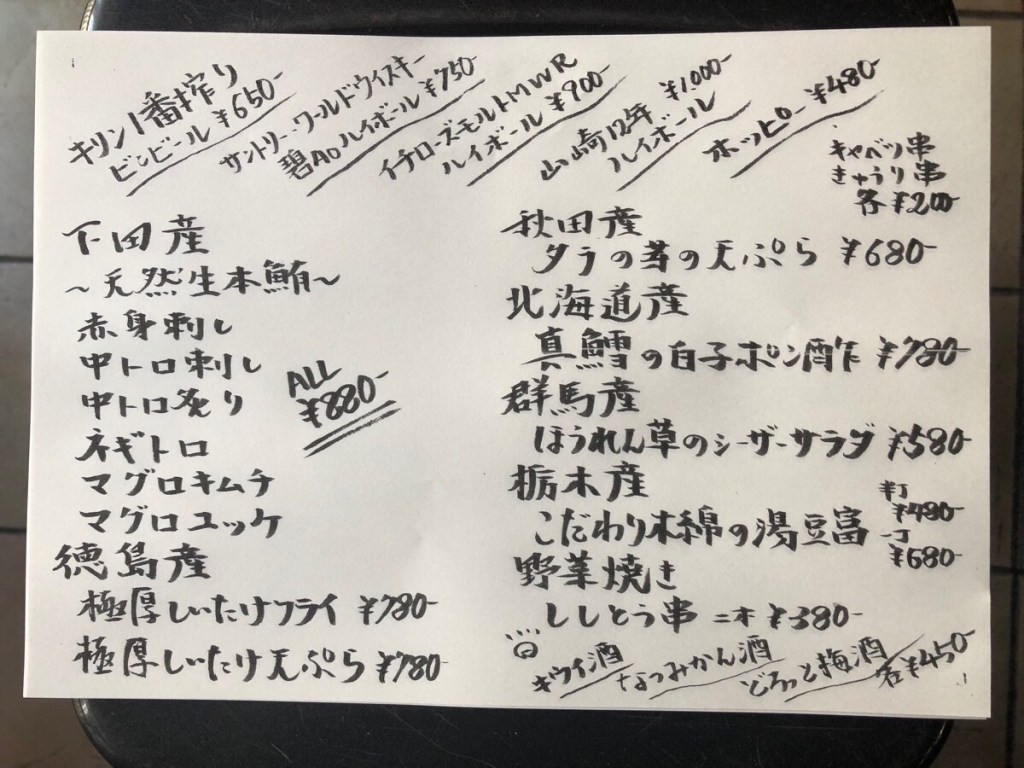 キリン一番搾り
ビンビール ¥650-
サントリー・ワールドウイスキー
碧Ao ハイボール ¥750-
イチローズモルトMWR
ハイボール ¥900-
山崎12年 ¥1,000-
ハイボール
ホッピー ¥480-
キャベツ串
きゅうり串
各¥200-
下田産
〜天然生本鮪〜
赤身刺し
中トロ刺し
中トロ炙り
ネギトロ
マグロキムチ
マグロユッケ
ALL
¥880-
徳島産
極厚しいたけフライ ¥780-
極厚しいたけ天ぷら ¥780-
秋田産
タラの芽の天ぷら ¥680-
北海道産
真鱈の白子ポン酢 ¥780-
群馬産
ほうれん草のシーザーサラダ ¥580-
栃木産
こだわり木綿の湯豆富
半丁
¥480-
一丁
¥680-
野菜焼き
ししとう串 二本 ¥380-
キウイ酒
なつみかん酒
どろっと梅酒
各¥450-